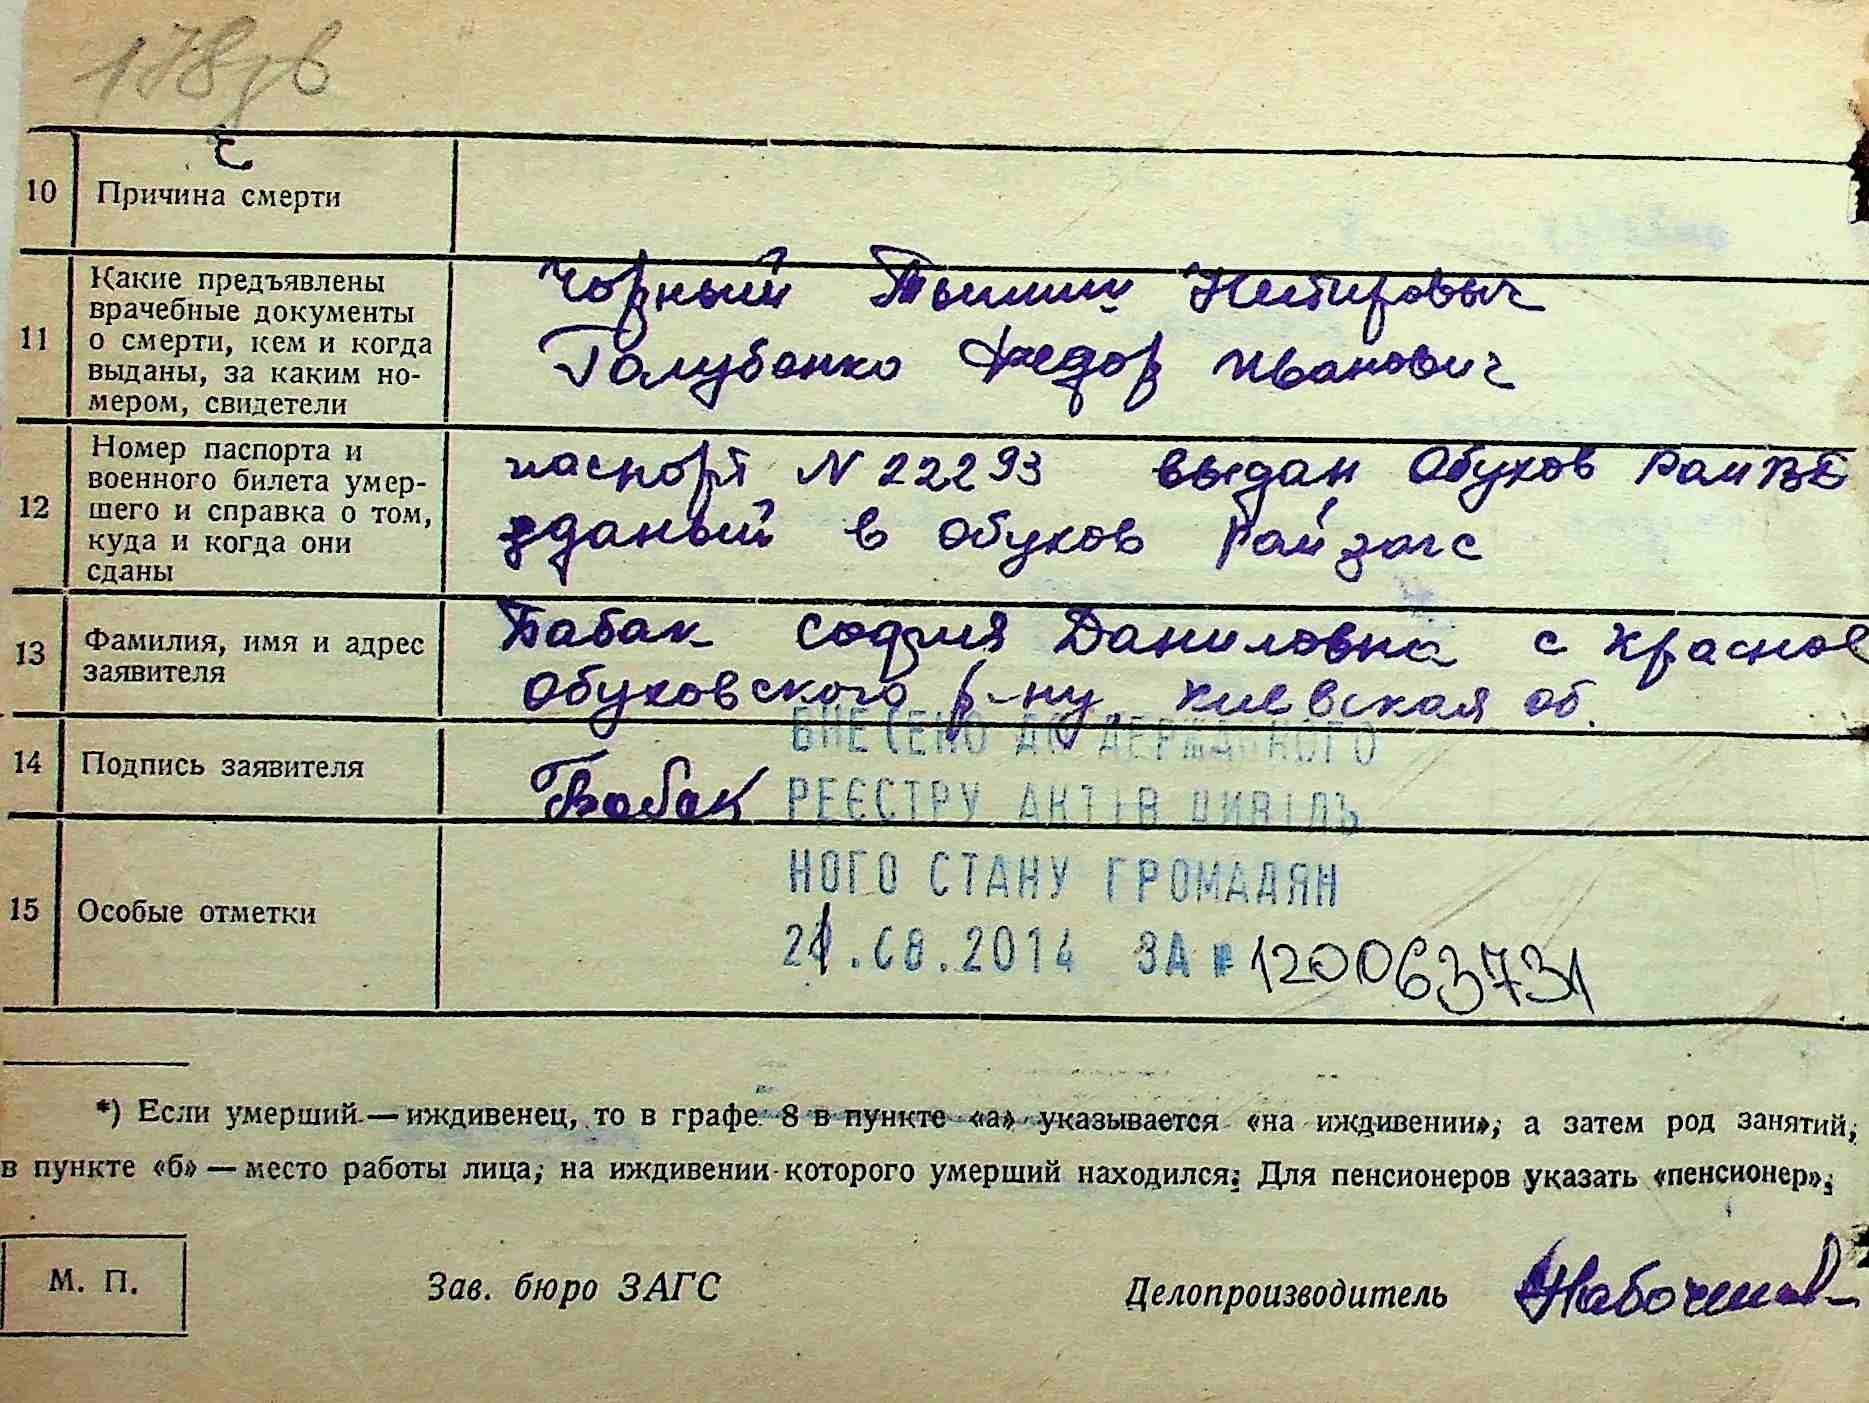 10 Причина смерти
11 Какие предъявлены
врачебные документы
о смерти, кем и когда
выданы, за каким но-
мером, свидетели
Чорный
Голубенко Федор Иванович
12 Номер паспорта и
военного билета умер-
шего и справка о том,
куда и когда они
сданы
паспорт N 22293 выдан Обухов
зданый в Обухов Райзагс
13 Фамилия, имя и адрес
заявителя
Бабак София Даниловна с Красное
Обуховского р-ну, Киевская об.
ВНЕСЕНО ДО ДЕРЖАВНОГО
14 Подпись заявителя
Бабак
РЕЄСТРУ АКТІВ ЦИВІЛЬ
НОГО СТАНУ ГРОМАДЯН
15 Особые отметки
21.08.2014 ЗА № 120063731
*) Если умерший — иждивенец, то в графе 8 в пункте «а» указывается «на иждивении», а затем род занятий,
в пункте «б» — место работы лица, на иждивении которого умерший находился. Для пенсионеров указать «пенсионер».
М. П.
Зав. бюро ЗАГС
Делопроизводитель